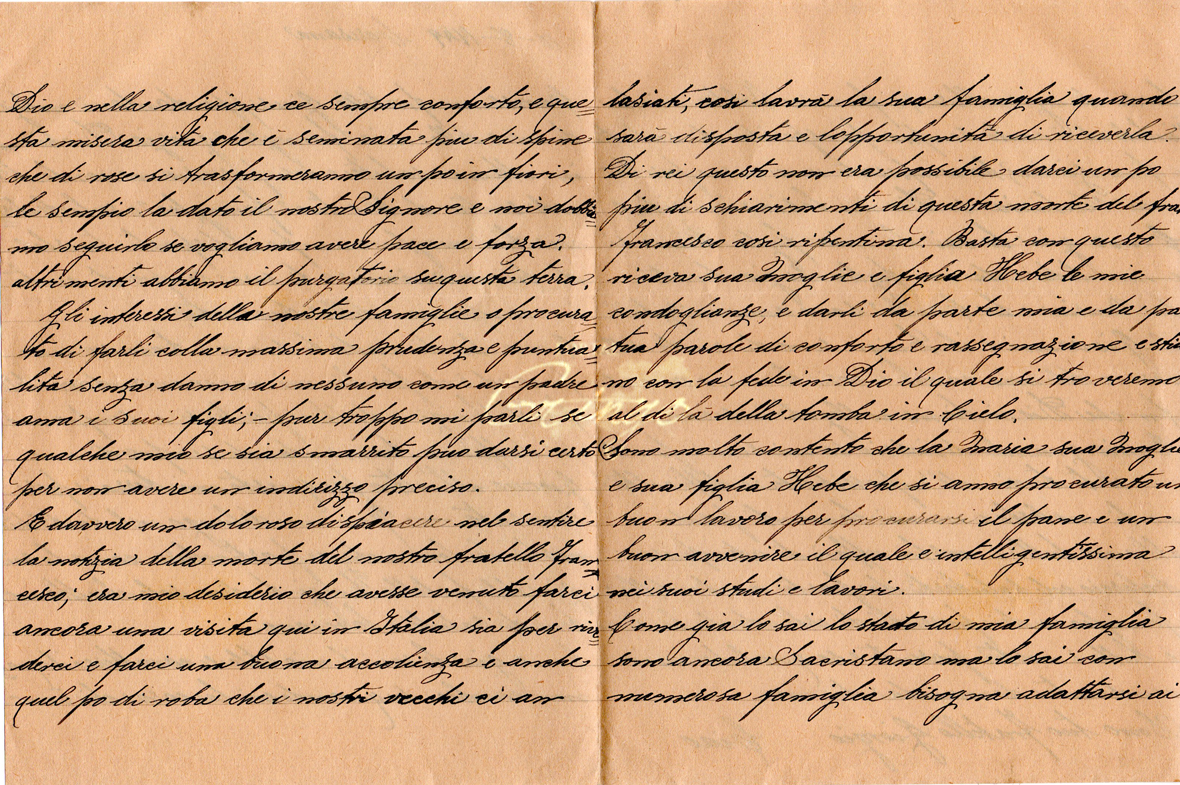 Dio e nella religione ce sempre conforto, e que=
sta misera vita che è seminata piu di spine
che di rose si trasformeranno un po in fiori,
le sempio la dato il nostro Signore e noi dobbia=
mo seguirlo se vogliamo avere pace e forza.
altrimenti abbiamo il purgatorio su questa terra.
Gli interessi della nostre famiglie o procura=
to di farli colla massima prudenza e puntua=
lità senza danno di nessuno come un padre
ama i suoi figli; – pur troppo mi parli se
qualche mio se sia smarrito puo darsi certo
per non avere un indirizzo preciso.
E davvero un doloroso dispiacere nel sentire
la notizia della morte del nostro fratello Fran=
cesco; era mio desiderio che avesse venuto farci
ancora una visita qui in Italia sia per rive=
derci e farci una buona accolienza e anche
quel po di roba che i nostri vecchi ci an
lasiati, cosi lavrà la sua famiglia quando
sarà disposta e lopportunità di riceverla.
Di rei questo non era possibile darci un po
piu di schiarimenti di questa morte del fra
Francesco cosi ripentina. Basta con questo
riceva sua Moglie e figlia Hebe le mie
condoglianze, e darli da parte mia e da pa
tua parole di conforto e rassegnazione e stia
no con la fede in Dio il quale si troveremo
al di là della tomba in Cielo.
Sono molto contento che la Maria sua Moglie
e sua figlia Hebe che si anno procurato un
buon lavoro per procurarsi il pane e un
buon avvenire il quale e intelligentissima
nei suoi studi e lavori.
Come gia lo sai lo stato di mia famiglia
sono ancora Sacristano ma lo sai con
numerosa famiglia bisogna adattarsi ai